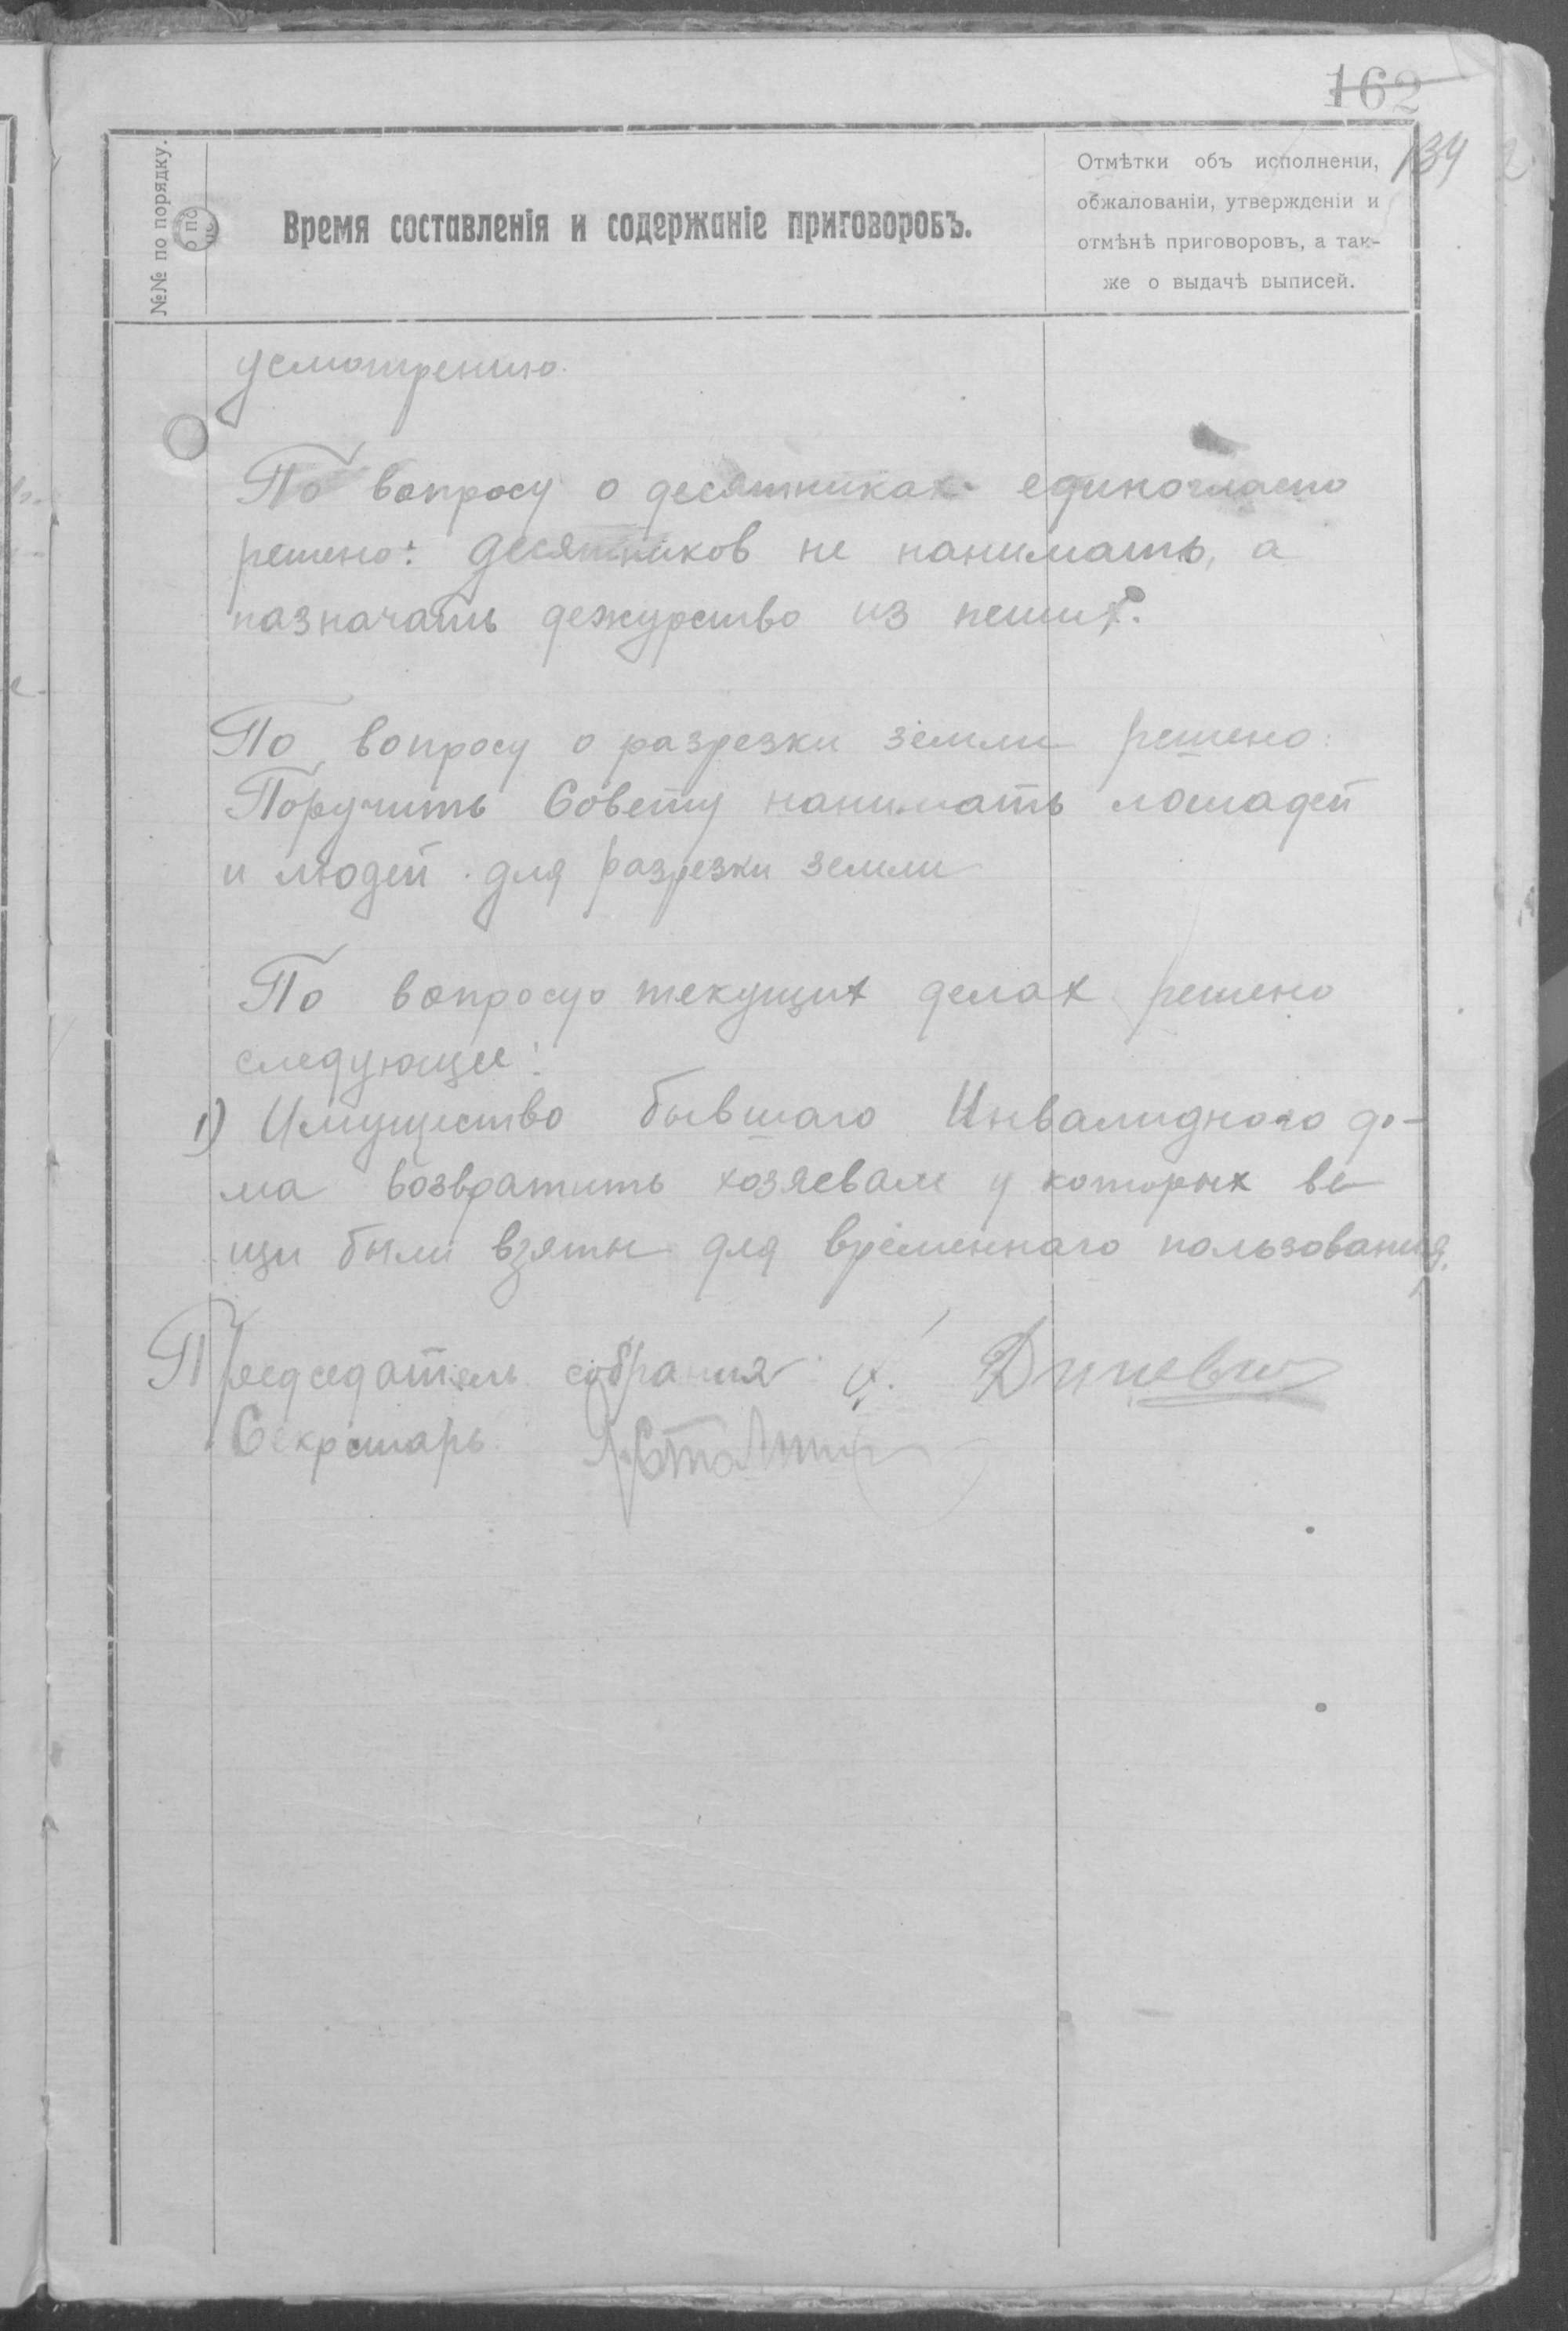 162
134
№№ по порядку.
Время составленія и содержаніе приговоровъ.
Отмѣтки объ исполненіи,
обжалованіи, утвержденіи и
отмѣнѣ приговоровъ, а так-
же о выдачѣ выписей.
усмотрению.
По вопросу о десятниках единогласно
решено: десятников не нанимать, а
назначать дежурство из пеших.
По вопросу о разрезки земли решено:
Поручить Совету нанимать лошадей
и людей для разрезки земли
По вопросу о текущих делах решено
следующее:
1) Имущество бывшаго Инвалидного до-
ма возвратить хозяевам у которых ве
щи были взяты для временнаго пользования.
Председатель собрания
Секретарь